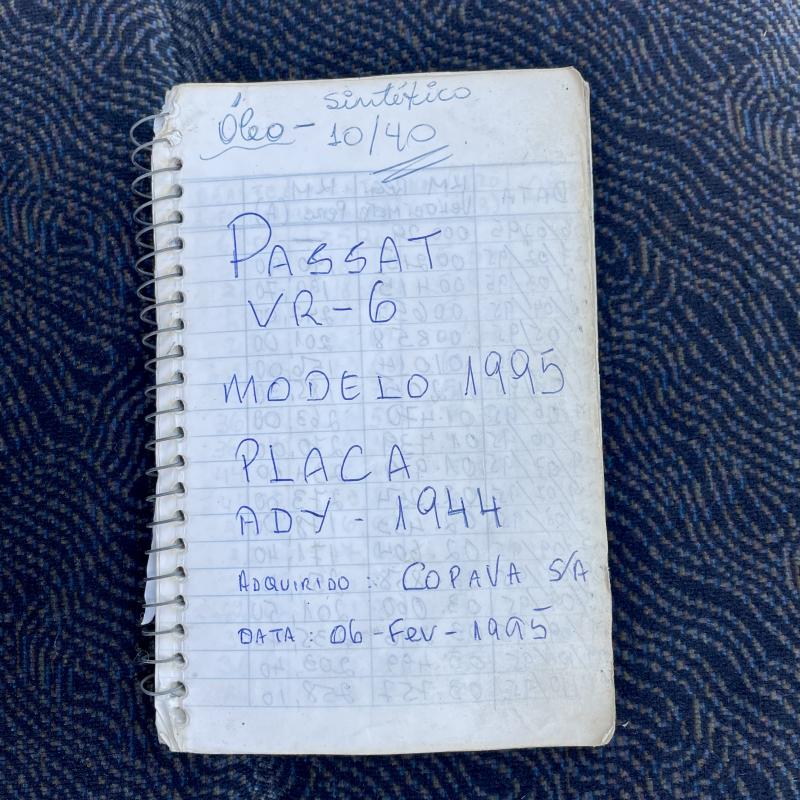 sintético
Óleo - 10/40
PASSAT
VR-6
MODELO 1995
PLACA
ADY - 1944
ADQUIRIDO : COPAVA S/A
DATA : 06 - Fev - 1995